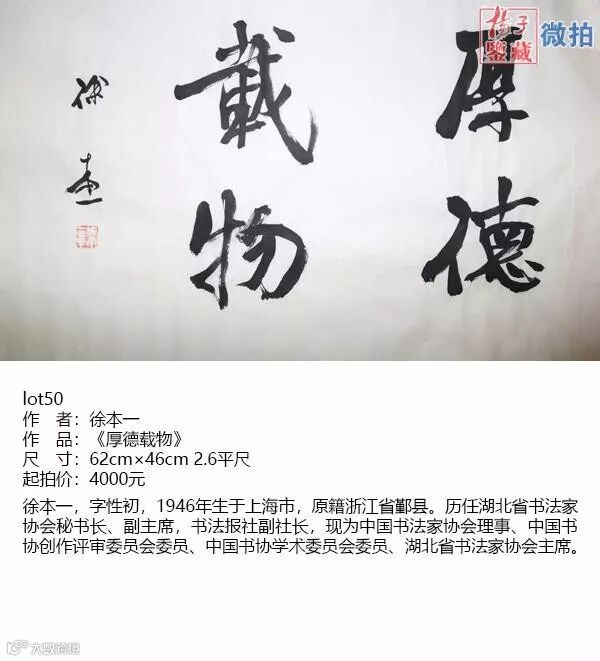 厚德
載物
徐本一
揚子
鑒藏
微拍
lot50
作 者：徐本一
作 品：《厚德载物》
尺 寸：62cm×46cm 2.6平尺
起拍价：4000元
徐本一，字性初，1946年生于上海市，原籍浙江省鄞县。历任湖北省书法家
协会秘书长、副主席，书法报社副社长，现为中国书法家协会理事、中国书
协创作评审委员会委员、中国书协学术委员会委员、湖北省书法家协会主席。
大歐跨境